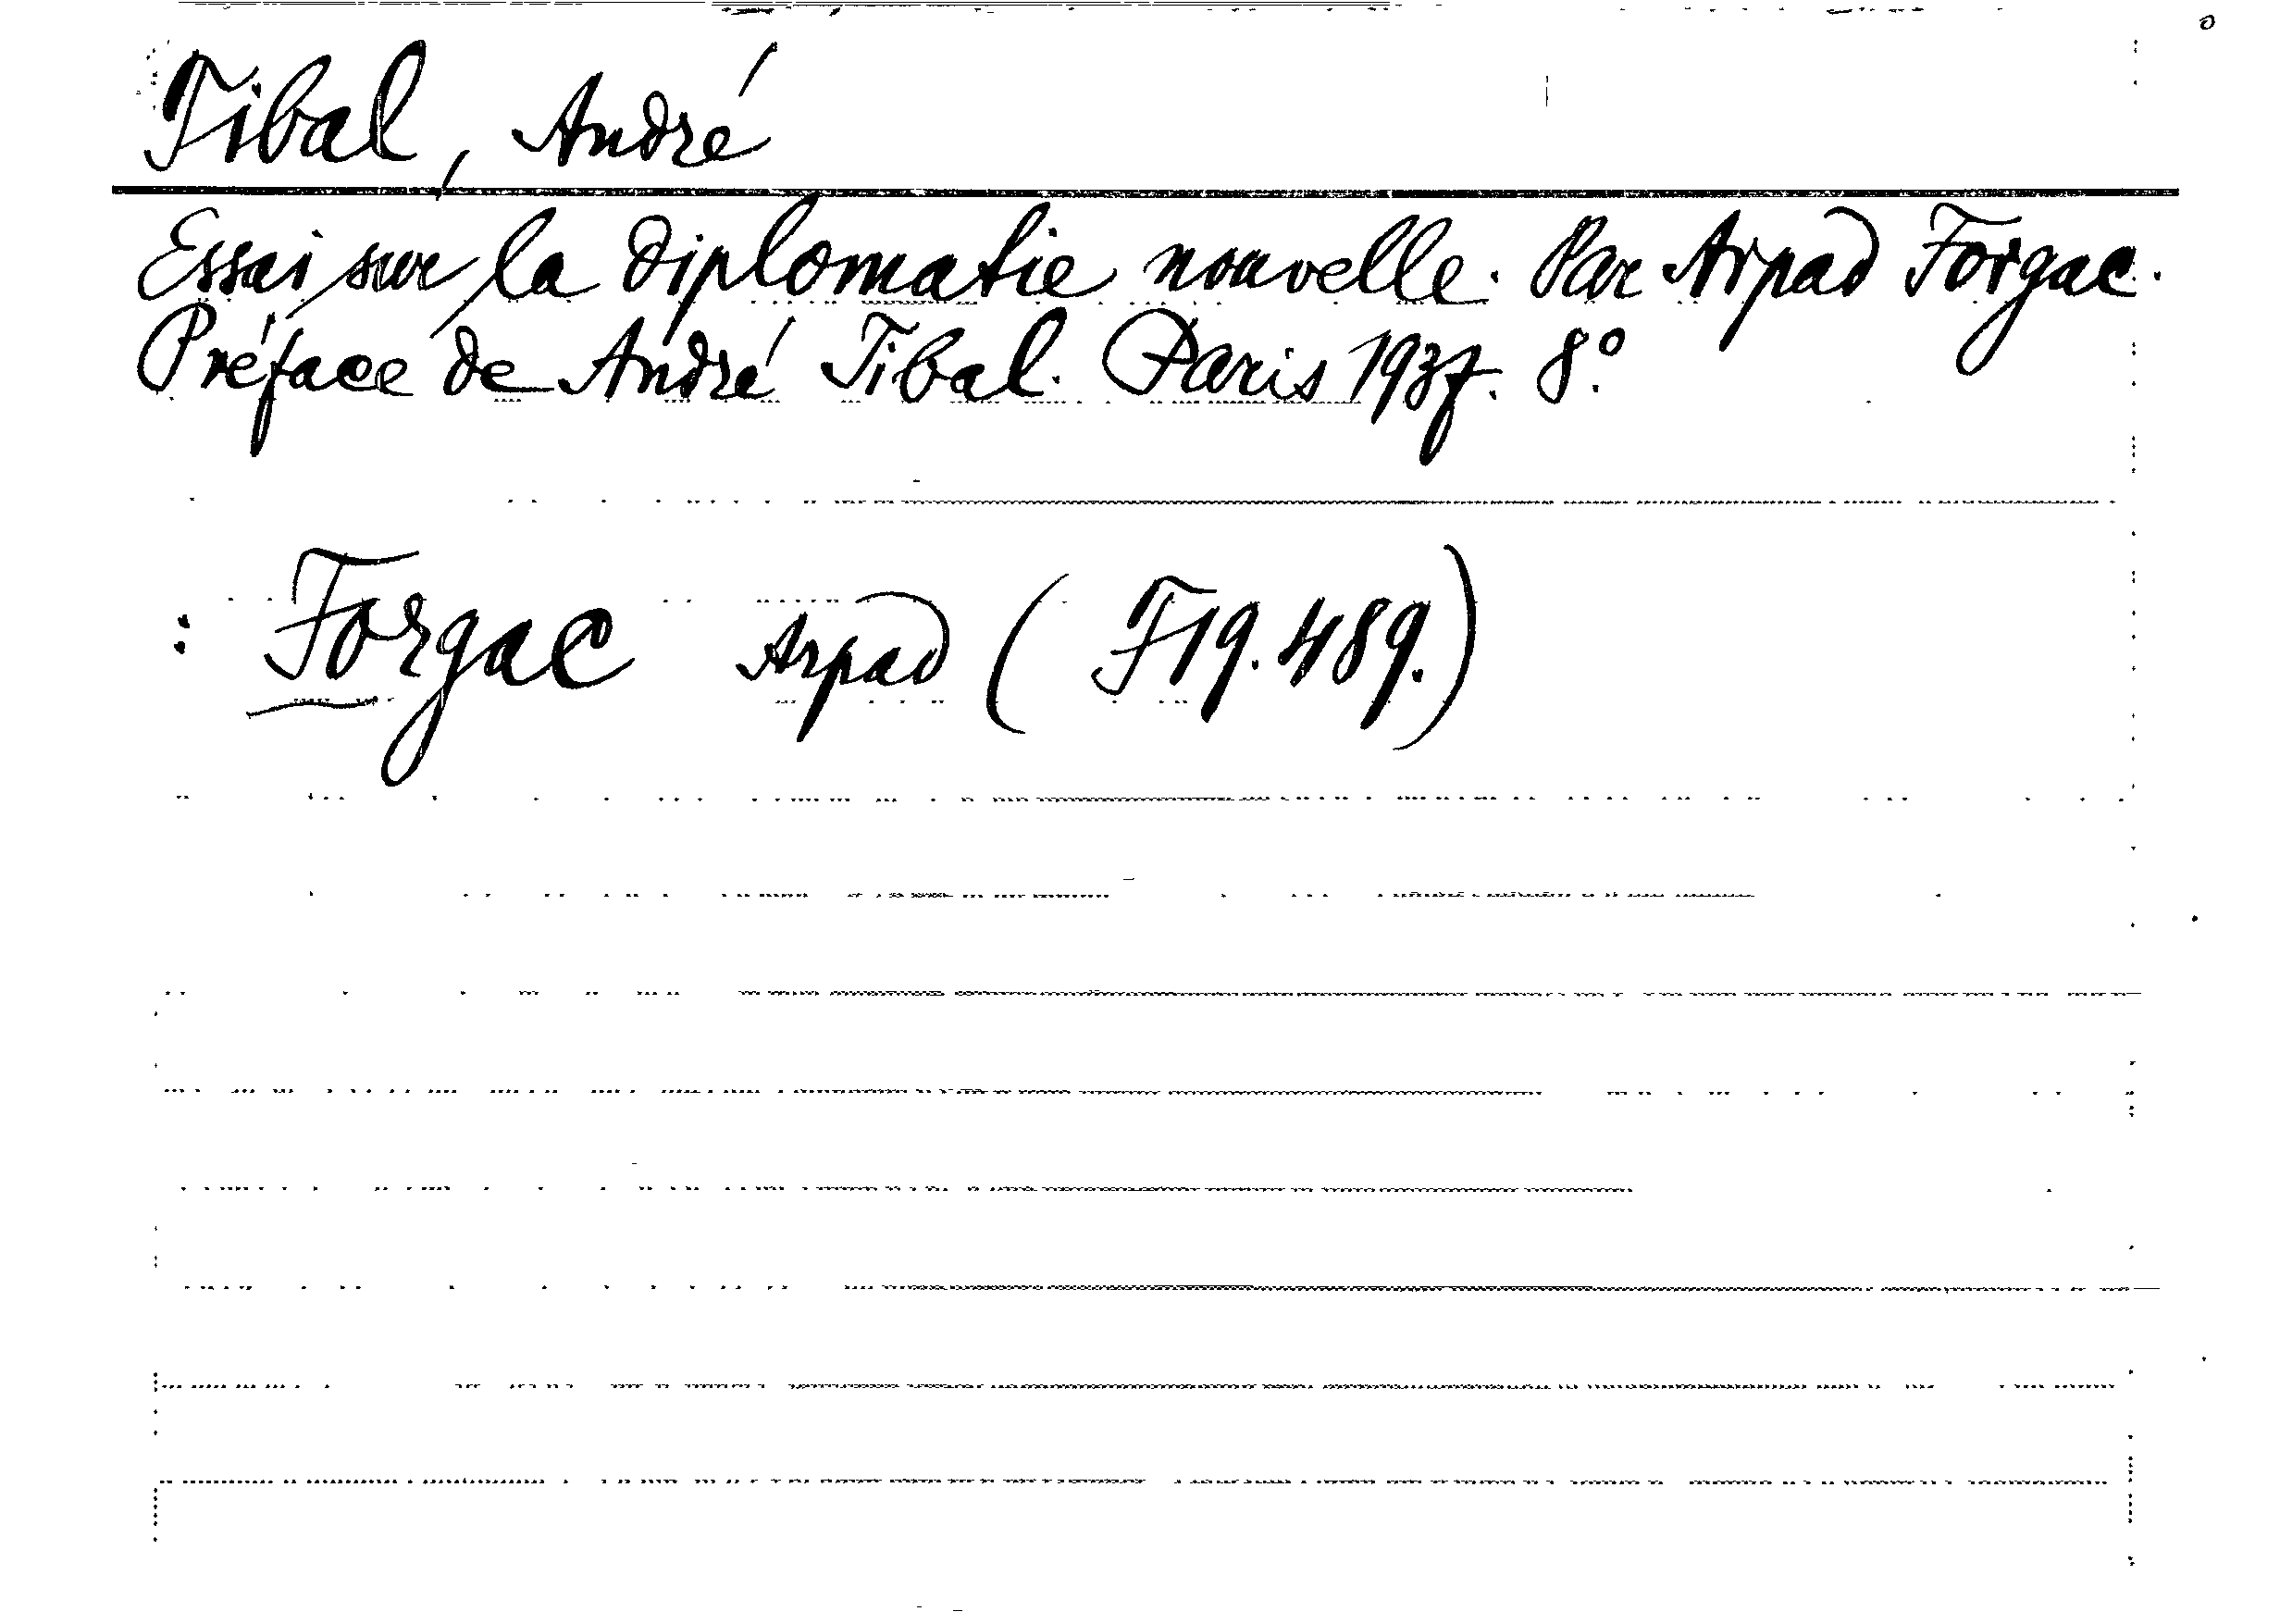 Tibal, André
Essai sur la diplomatie nouvelle. Par Arpad Forgac.
Préface de André Tibal. Paris 1937. 8°.
: Forgac Arpad (F19.489.)